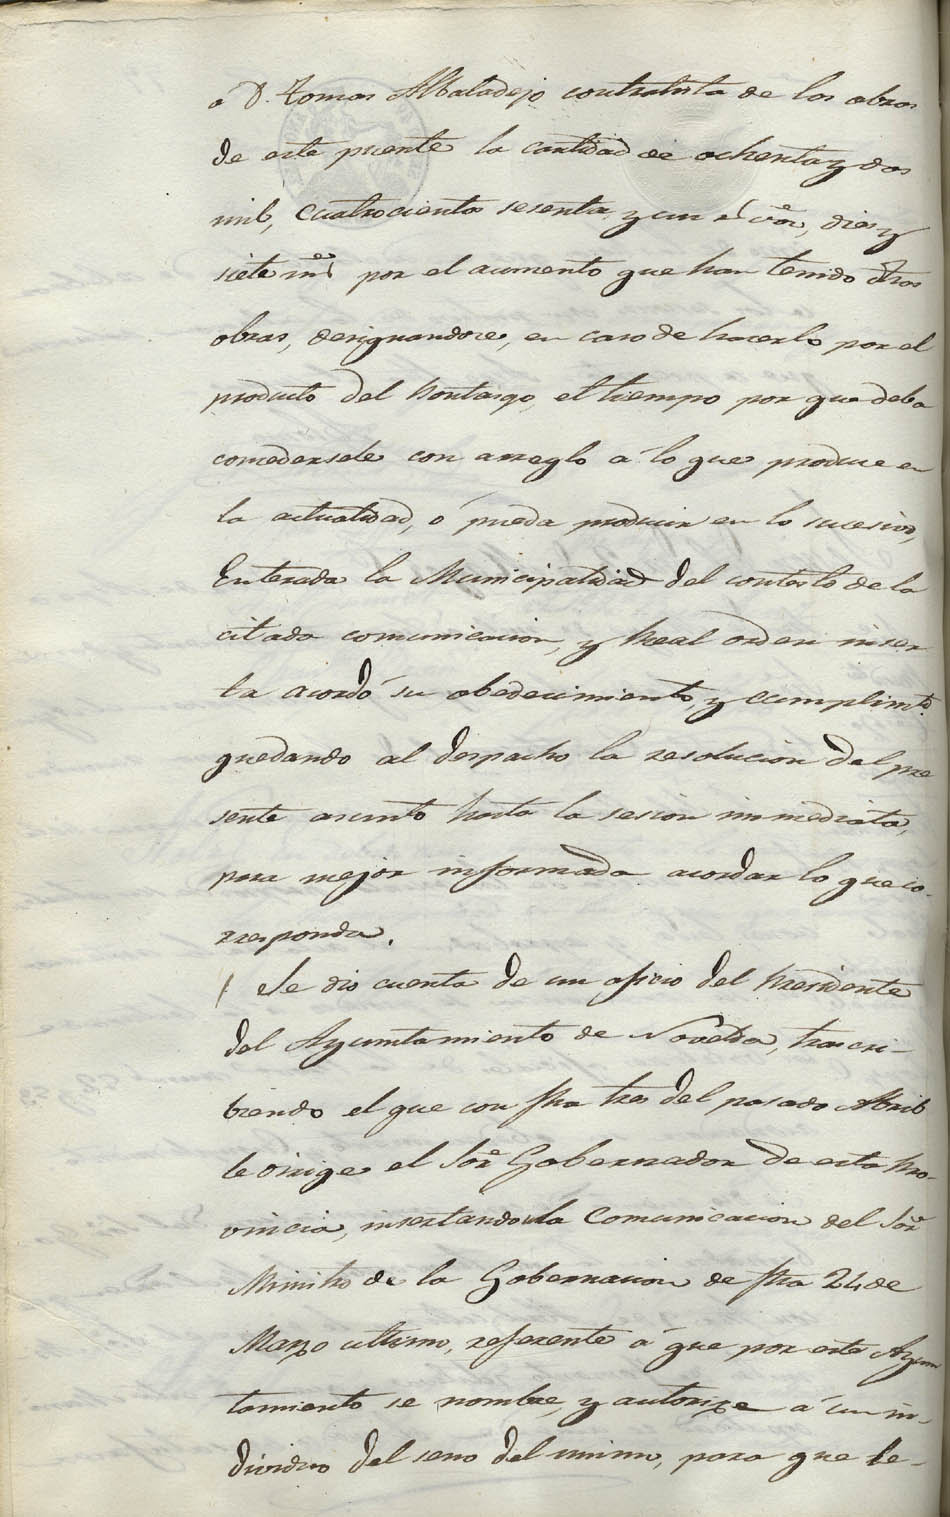 á D. Tomas Albaladejo contratista de las obras
de este puente la cantidad de ochenta y dos
mil, cuatrocientos sesenta, y un rˢ vˢⁿ, diez y
siete mrˢ por el aumento que han tenido dhas
obras, designandose, en caso de hacerlo por el
producto del Pontasgo, el tiempo por que deba
concedersele con arreglo á lo que produce en
la actualidad, ó pueda producir en lo sucesivo,
Enterada la Municipalidad del contesto de la
citada comunicacion, y Real orden inser
ta acordó su obedecimiento, y cumplimᵗᵒ
quedando al despacho la resolucion del pre
sente asunto hasta la sesion immediata,
para mejor informada acordar lo que co-
rresponda.
/ Se dio cuenta de un oficio del Presidente
del Ayuntamiento de Novelda, trascri-
biendo el que con fha tres del pasado Abril
le dirige el Sor Gobernador de esta Pro-
vincia, insertando la Comunicacion del Sor
Ministro de la Gobernacion de fha 24 de
Marzo ultimo, referente á que por este Ayun
tamiento se nombre, y autorize á un in-
dividuo del seno del mismo, para que le-